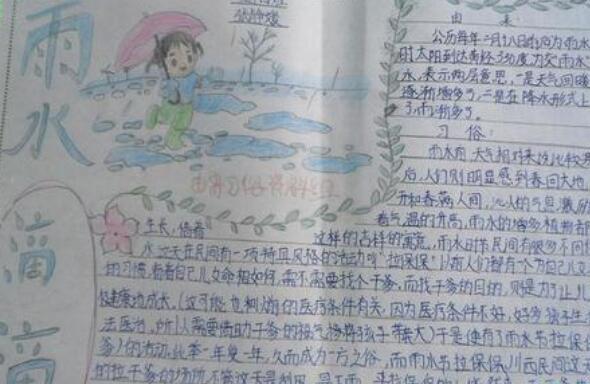 雨水
滴滴
由来:
公历每年二月十八日前后为雨水
时太阳到达黄经330度为交雨水
水,表示两层意思,一是天气回暖
逐渐增多了,二是在降水形式上
了,雨渐多了。
习俗:
雨水前,天气相对来说比较
后,人们则明显感到春回大地
和春满人间,沁人的气息激励
着气温的升高,雨水的增多
生长,倍春
这样的吉祥的寓意,雨水时节民间有很多不同
水这天在民间有一项特具风格的活动叫"拉保保"以前人们都有一个为自己儿女
的习惯,看看自己儿女命相如何,需不需要找个干爹,而找干爹的目的,则是为了让儿
健康地成长,(这可能也和以前的医疗条件有关,因为医疗条件不好,好多孩子生
法医治,所以需要借助干爹的福气扬将孩子带大)于是便有了雨水节拉保
爹)的活动,此举一年复一年,久而成为一方之俗,而雨水节拉保保,川西民间这
的拉干爹的